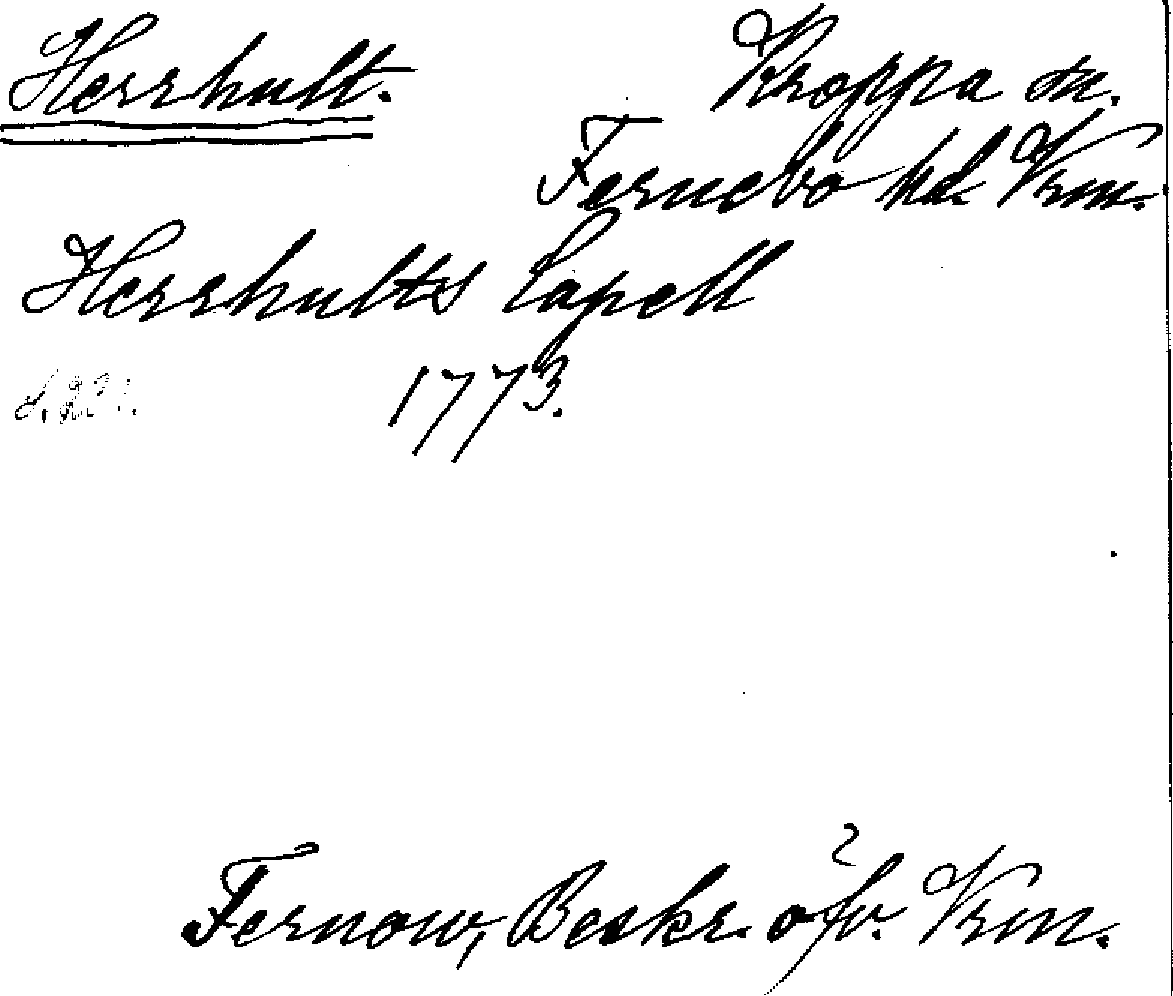 Herrhult. Kroppa sn.
Fernebo hd. Vrm.
Herrhults Capell
1773.
Fernow, Beskr. öfv. Vrm.